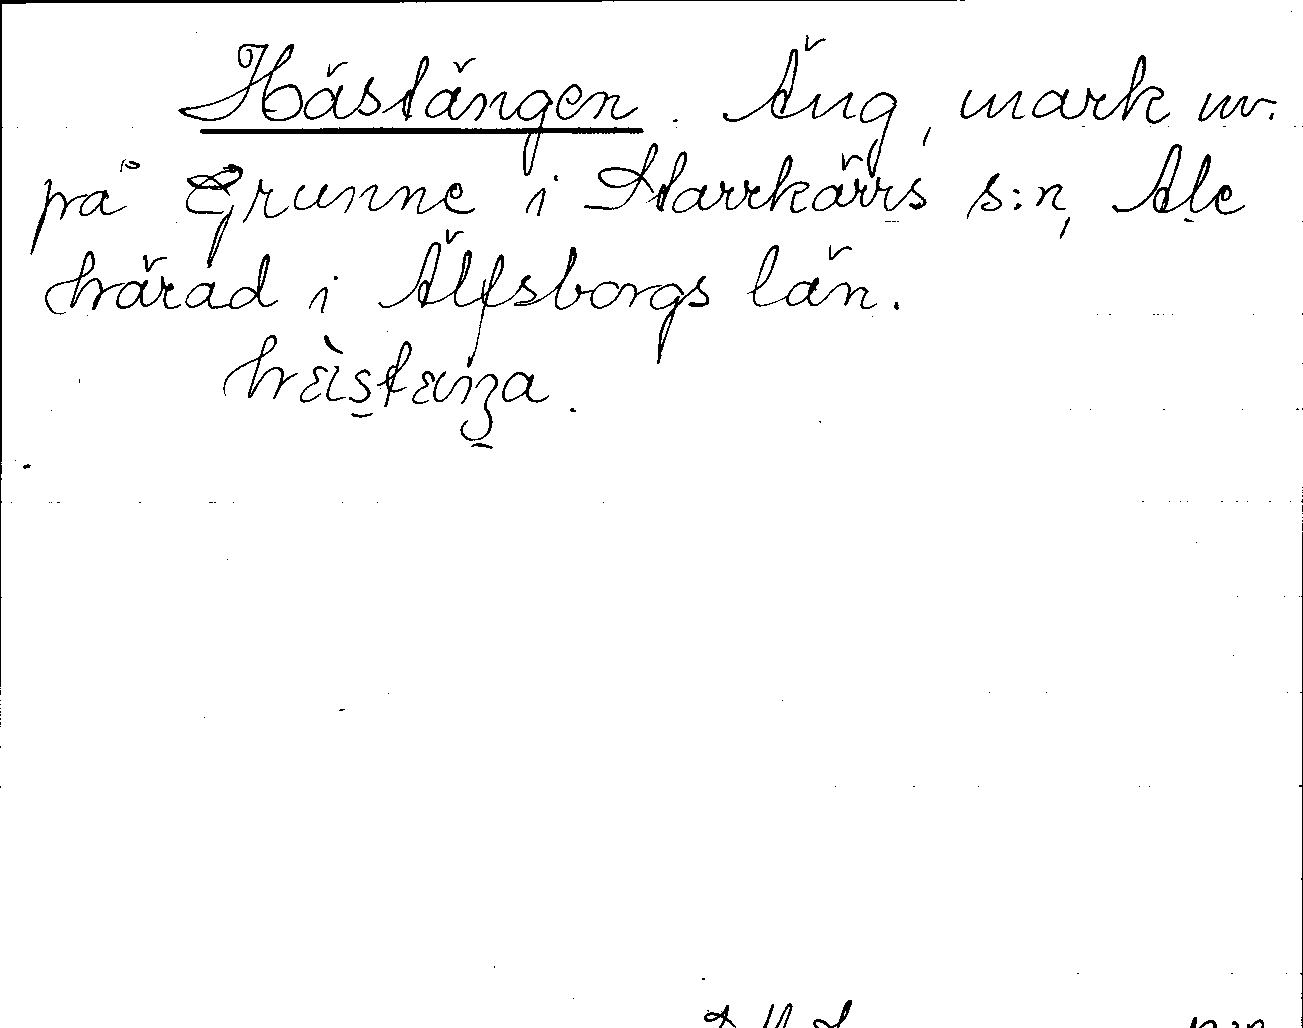 Hästängen. Äng, mark nv.
på Grunne i Starrkärrs s:n, Ale
härad i Älfsborgs län.